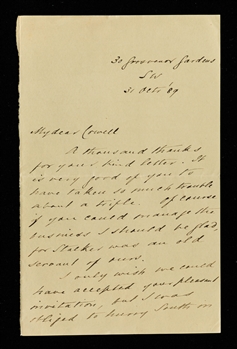 30 Grosvenor Gardens
SW
31 Octr 89
My dear Cowell
A thousand thanks
for your kind letter. It
is very good of you to
have taken so much trouble
about a trifle. Of course
if you could manage the
business I should be glad,
for Stalker was an old
servant of ours.
I only wish we could
have accepted your pleasant
invitation, but I was
obliged to hurry South on